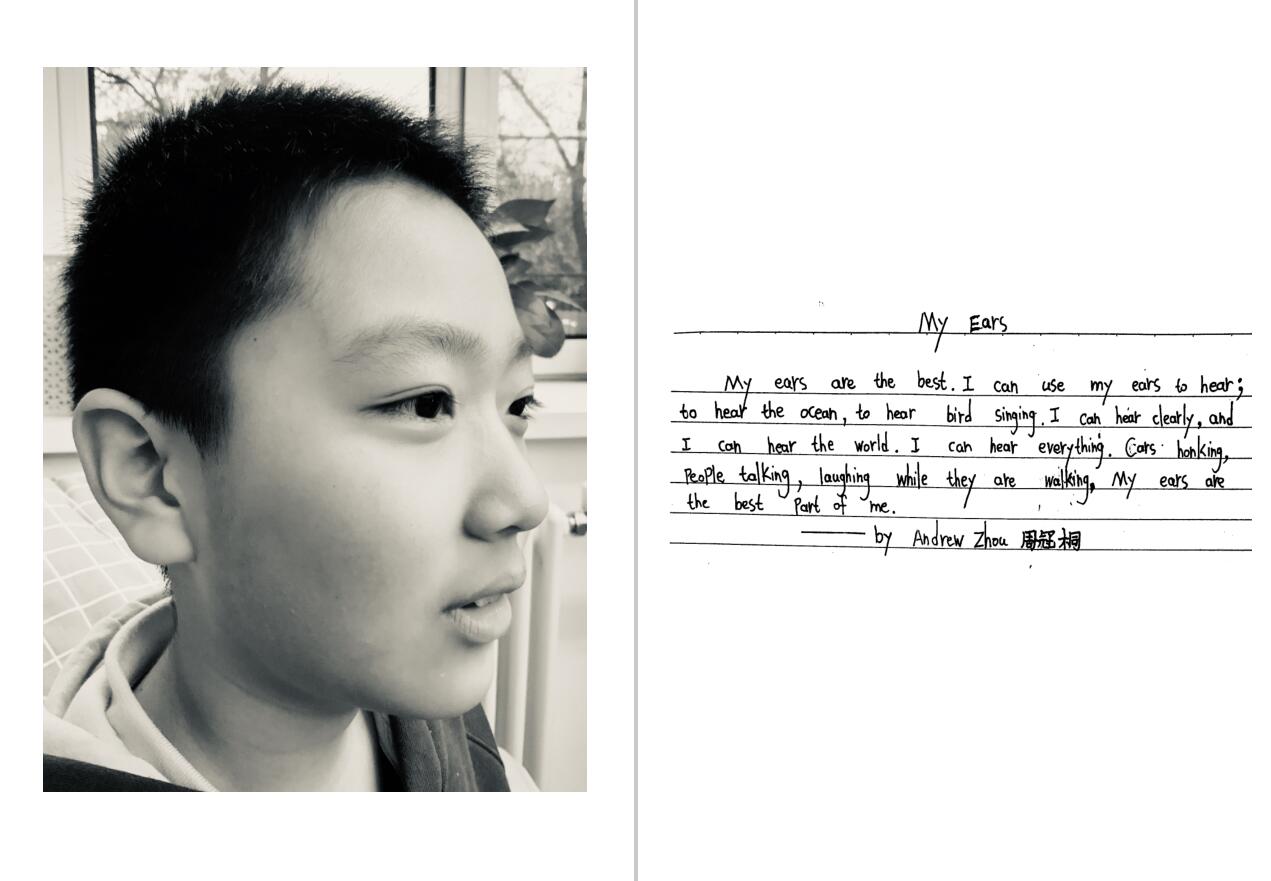 My Ears
My ears are the best. I can use my ears to hear;
to hear the ocean, to hear bird singing. I can hear clearly, and
I can hear the world. I can hear everything. Cars honking,
People talking, laughing while they are walking, My ears are
the best Part of me.
—— by Andrew Zhou 周冠桐